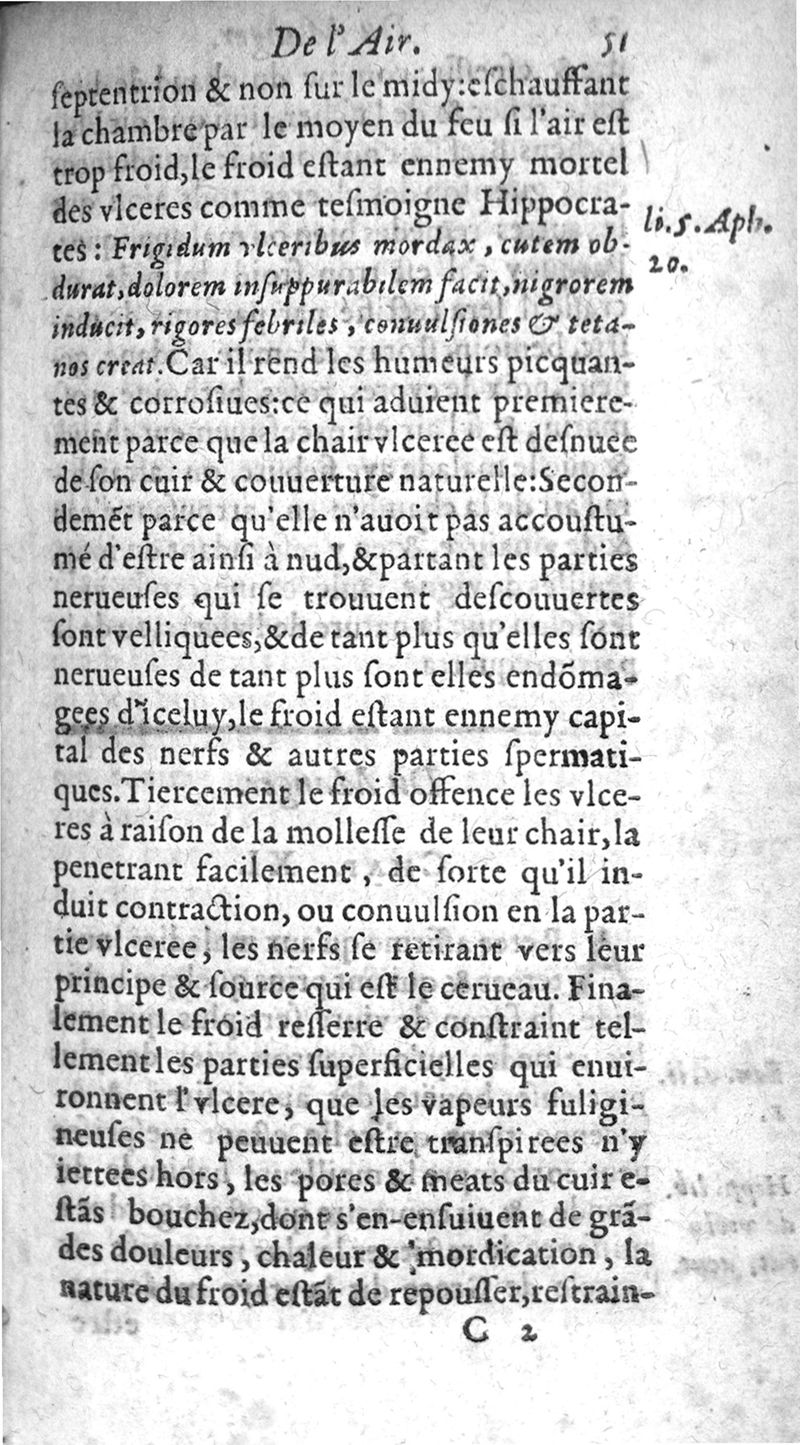 De l'Air. 51
ſeptentrion & non ſur le midy:eſchauffant
la chambre par le moyen du feu ſi l'air eſt
trop froid,le froid eſtant ennemy mortel
des vlceres comme teſmoigne Hippocra-
li.5.Aph.
20.
tes : Frigidum vlceribus mordax, cutem ob-
durat,dolorem inſuppurabilem facit,nigrorem
inducit, rigores febriles, conuulſiones & teta-
nos creat.Car il rend les humeurs picquan-
tes & corroſiues:ce qui aduient premiere-
ment parce que la chair vlceree eſt deſnuee
de ſon cuir & couuerture naturelle:Secon-
demēt parce qu'elle n'auoit pas accouſtu-
mé d'eſtre ainſi à nud,&partant les parties
nerueuſes qui ſe trouuent deſcouuertes
ſont velliquees,&de tant plus qu'elles ſont
nerueuſes de tant plus ſont elles endōma-
gees d'iceluy,le froid eſtant ennemy capi-
tal des nerfs & autres parties ſpermati-
ques.Tiercement le froid offence les vlce-
res à raiſon de la molleſſe de leur chair,la
penetrant facilement, de ſorte qu'il in-
duit contraction, ou conuulſion en la par-
tie vlceree, les nerfs ſe retirant vers leur
principe & ſource qui eſt le cerueau. Fina-
lement le froid reſſerre & conſtraint tel-
lement les parties ſuperficielles qui enui-
ronnent l'vlcere, que les vapeurs fuligi-
neuſes ne peuuent eſtre tranſpirees n'y
iettees hors, les pores & meats du cuir e-
ſtās bouchez,dont s'en-enſuiuent de grā-
des douleurs, chaleur & mordication, la
nature du froid eſtāt de repouſſer,reſtrain-
C 2